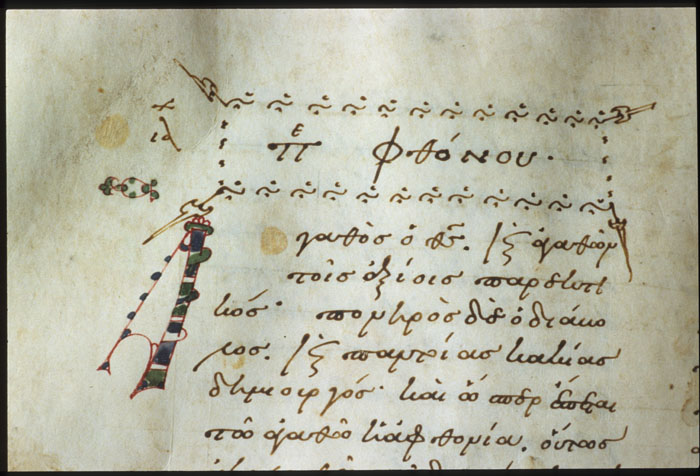 πε φθόνου·
Ἀγαθὸς ὁ θς. καὶ ἀγαθῶν
τοῖς ἀξίοις παρεκτι
κός· πονηρὸς δὲ ὁ διάβο
λος. καὶ παντοίας κακίας
δημιουργός· καὶ ὥσπερ ἕπεται
τῶ ἀγαθῶ ἡ ἀφθονία. οὕτως